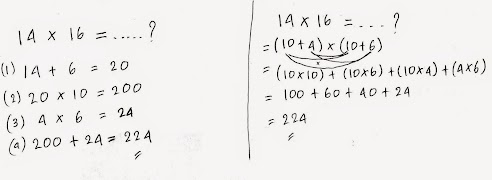 14 x 16 = ..... ?
(1) 14 + 6 = 20
(2) 20 x 10 = 200
(3) 4 x 6 = 24
(4) 200 + 24 = 224
14 x 16 = ... ?
= (10+4) x (10+6)
= (10x10) + (10x6) + (10x4) + (4x6)
= 100 + 60 + 40 + 24
= 224